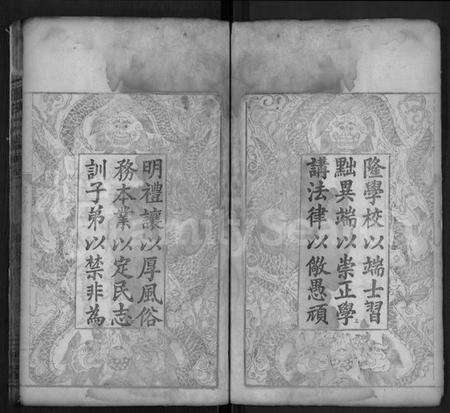 隆學校以端士習
黜異端以崇正學
講法律以儆愚頑
明禮讓以厚風俗
務本業以定民志
訓子弟以禁非為